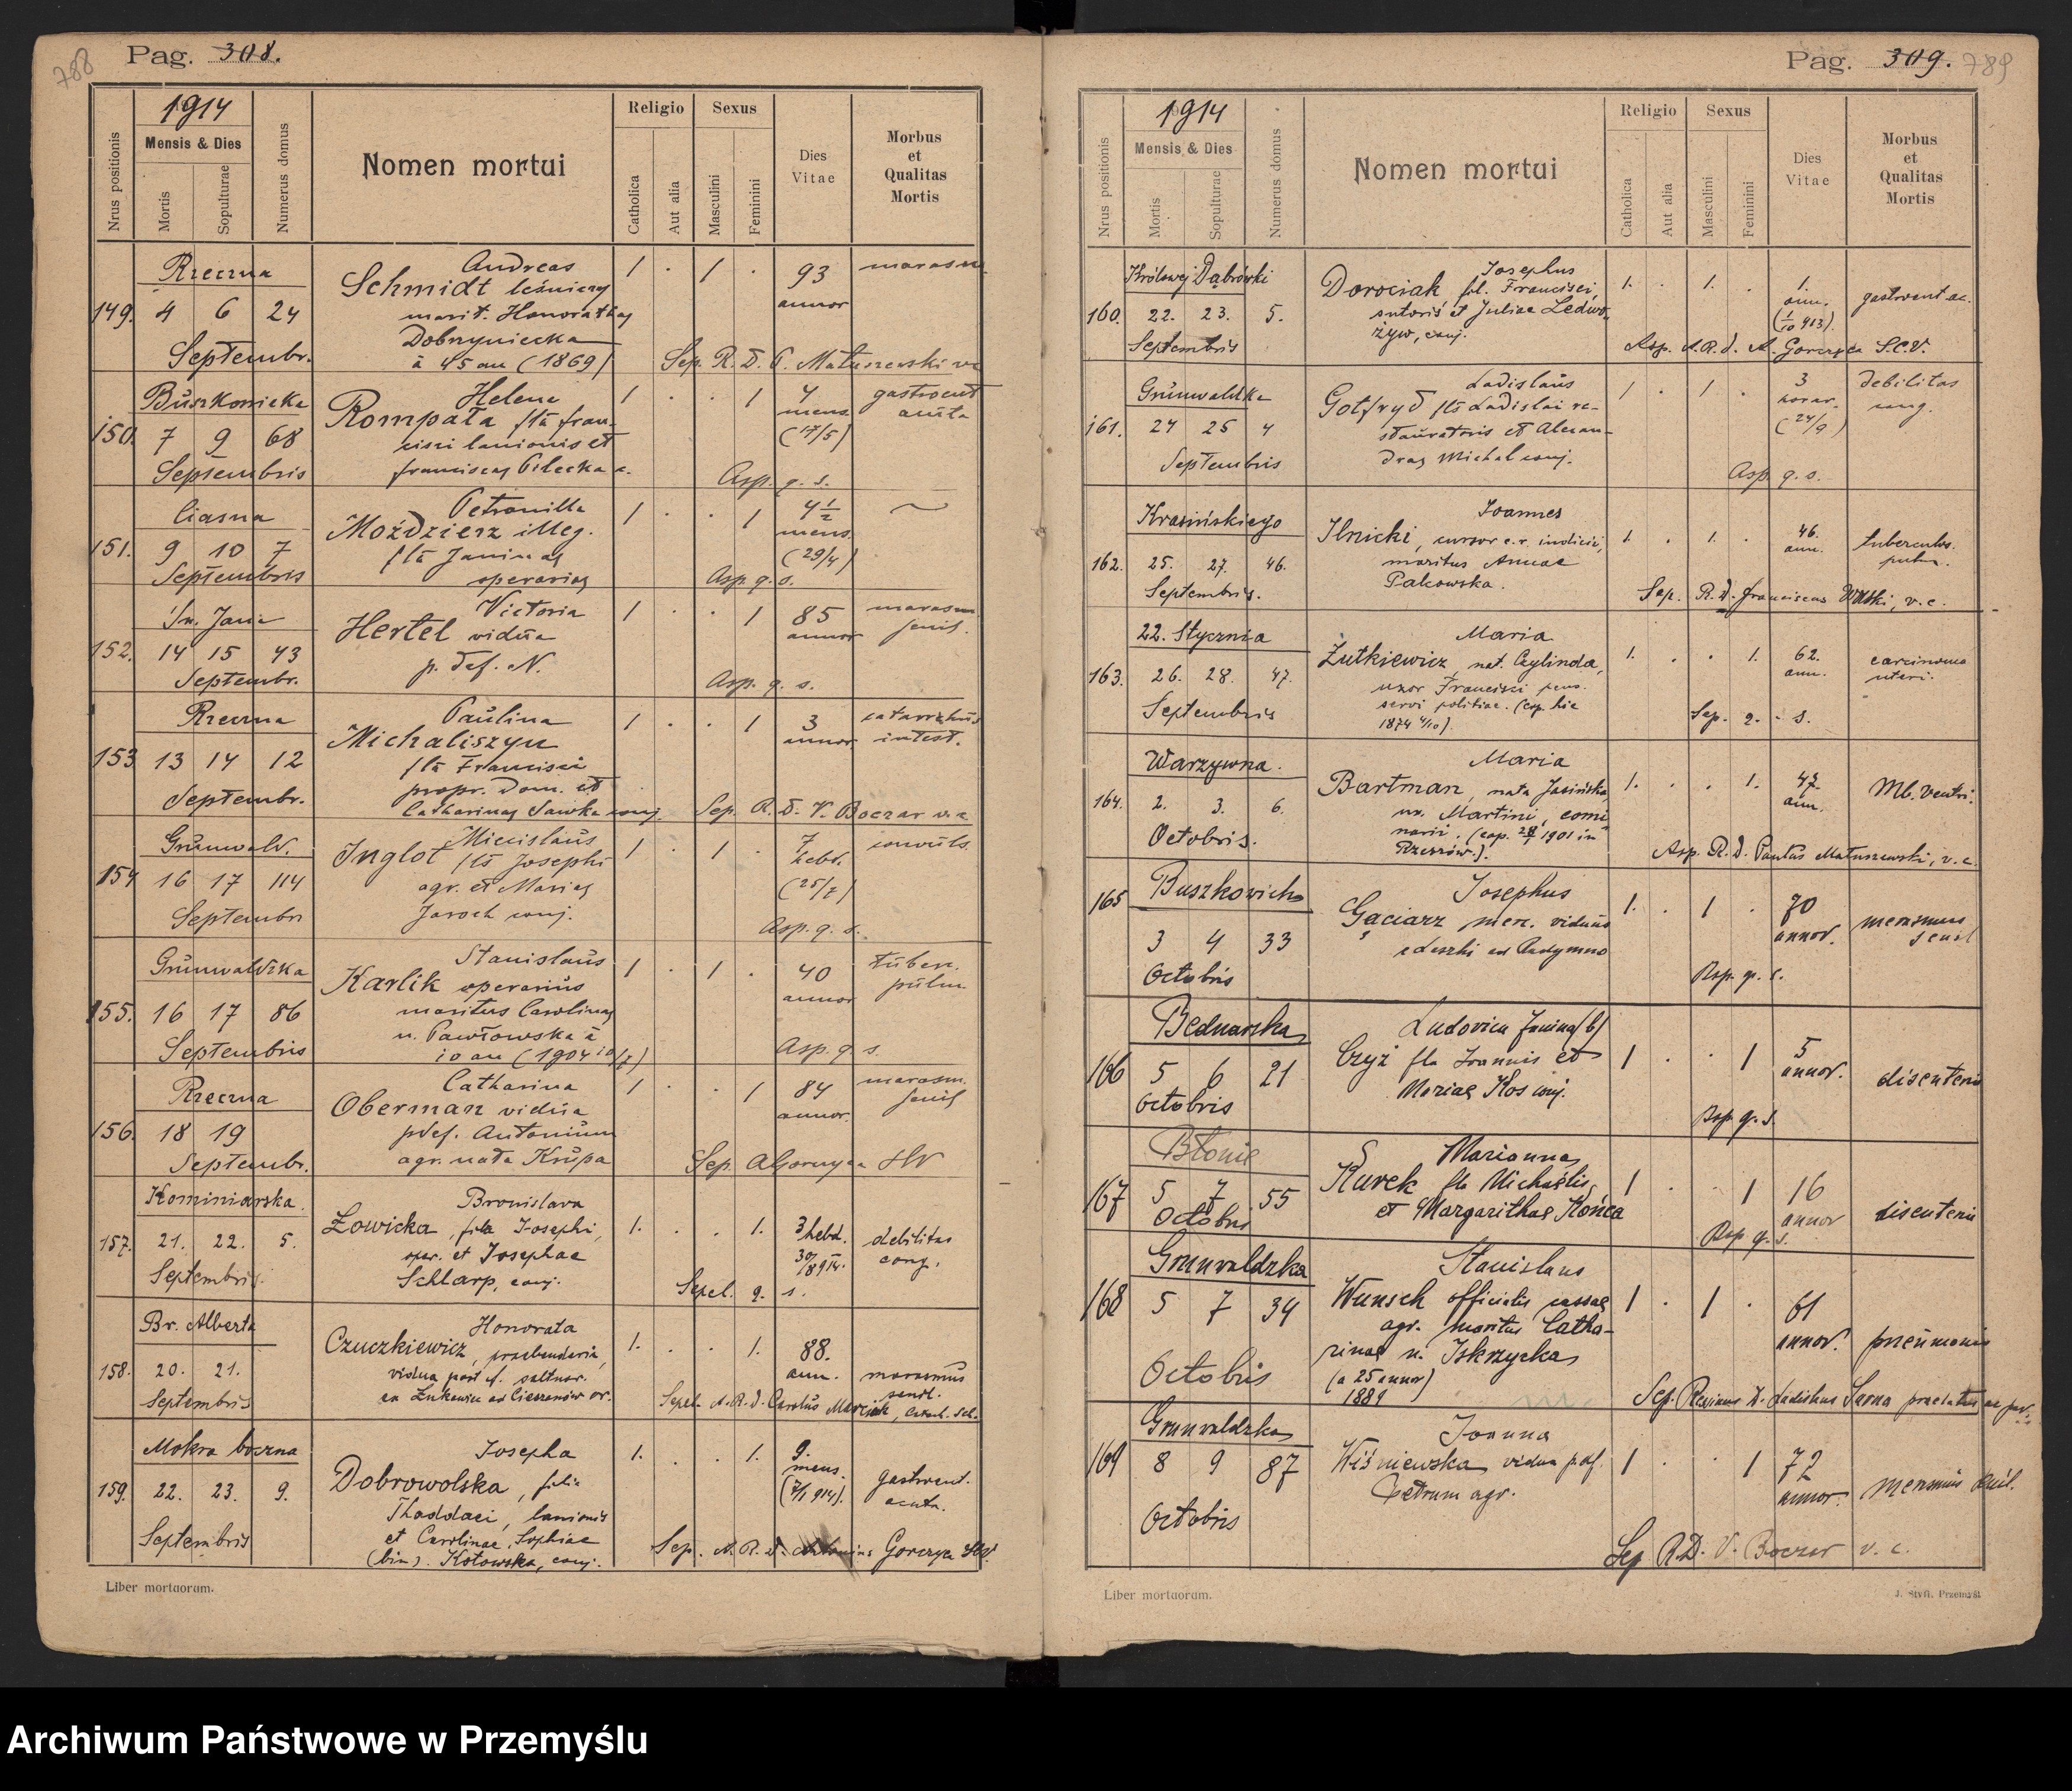 788
Pag. 308.
1914
Nrus positionis
Mensis & Dies
Mortis
Sopulturae
Numerus domus
Nomen mortui
Religio
Catholica
Aut alia
Sexus
Masculini
Feminini
Dies
Vitae
Morbus
et
Qualitas
Mortis
Rzeczna
149. 4 6 24
Septembr.
Andreas
Schmidt leśniczy
marit. Honorathae
Dobrzyniecka
à 45 an (1869)
1 . 1 .
93
annor
marasm.
Sep. R. D. P. Matuszewski vc
Buszkowicka
150. 7 9 68
Septembris
Helena
Rompała flā fran-
cisci lanionis et
franciscae Pilecka c.
1 . . 1
4
mens
(17/5)
gastroent
acuta
Asp. q. s.
Ciasna
151. 9 10 7
Septembris
Petronilla
Moździerz illeg.
flā Janinae
operariae
1 . . 1
4 1/2
mens.
(29/4)
Asp. q. s.
Św. Jana
152. 14 15 43
Septembr.
Victoria
Hertel vidua
p. def. N.
1 . . 1
85
annor
marasm
senil.
Asp. q. s.
Rzeczna
153 13 14 12
Septembr.
Paulina
Michaliszyn
flā Francisci
propr. dom. et
Catharinae Sawka conj.
1 . . 1
3
annor
catarrhus
intest.
Sep. R. D. V. Boczar v. c
Grunwald.
154 16 17 114
Septembri
Miecislaus
Inglot fls Josephi
agr. et Mariae
Jaroch conj.
1 . 1 .
7
hebd.
(25/7)
convuls.
Asp. q. s.
Grunwaldzka
155. 16 17 86
Septembris
Stanislaus
Karlik operarius
maritus Carolinae
n. Pawłowska à
10 an (1904 10/7)
1 . 1 .
40
annor
tuberc.
pulm
Asp. q. s.
Rzeczna
156. 18 19
Septembr.
Catharina
Oberman vidua
pdef. Antonium
agr. nata Krupa
1 . . 1
84
annor.
marasm.
senil
Sep. AGorczyca SCV
Kominiarska.
157. 21. 22. 5.
Septembris.
Bronislava
Łowicka, filia Josephi,
oper. et Josephae
Schlarp, conj.
1. . . 1.
3 hebd.
30/8 914.
debilitas
cong.
Sepel. q. s.
Br. Alberta
158. 20. 21.
Septembris
Honorata
Czuczkiewicz, praebendaria,
vidua post f. saltuar.
ex Łukawiec ad Cieszanów or.
1. . . 1.
88.
ann.
marasmus
senil.
Sepel. A. R. D. Carolus
Mokra boczna
159. 22. 23. 9.
Septembris
Josepha
Dobrowolska, filia
Thaddaei, lanionis
et Carolinae, Sophiae
(bin). Kotowska, conj.
1. . . 1.
9.
mens.
(7/1 914).
gastroent.
acuta.
Sep. A. R. D. Antonius Gorczyca SCV.
Liber mortuorum.
Pag. 309. 789
1914
Nrus positionis
Mensis & Dies
Mortis
Sopulturae
Numerus domus
Nomen mortui
Religio
Catholica
Aut alia
Sexus
Masculini
Feminini
Dies
Vitae
Morbus
et
Qualitas
Mortis
Królowej Dąbrówki
160. 22. 23. 5.
Septembris
Josephus
Dorociak, fil. Francisci,
sutoris et Juliae Ledwo-
żyw, conj.
1. . 1. .
1.
ann.
(1/10 913).
gastroent ac.
Asp. A. R. d. A. Gorczyca S.C.V.
Grunwaldzka
161. 24 25 4
Septembris
Ladislaus
Gotfryd fls Ladislai re-
stauratoris et Alexan-
drae Michal conj.
1 . 1 .
3
horar.
(24/9)
debilitas
cong.
Asp. q. s.
Krasińskiego
162. 25. 27. 46.
Septembris.
Joannes
Ilnicki, cursor c. r. iudicii,
maritus Annae
Pakowska.
1. . 1. .
46.
ann.
tuberculos.
pulm.
Sep. R. D. Franciscus
22. Stycznia
163. 26. 28. 47.
Septembris
Maria
Żutkiewicz, nat. Cylinda,
uxor Francisci pens.
servi politiae. (cop. hic
1874 4/10).
1. . . 1.
62.
ann.
carcinoma
uteri.
Sep. q. s.
Warzywna.
164. 2. 3. 6.
Octobris.
Maria
Bartman, nata Jasińska,
ux. Martini,
(cop. 1901 in
Rzeszów.).
1. . . 1.
47.
ann.
Mb. Ventri.
Asp. R. D. Paulus Matuszewski, v. c.
Buszkowicka
165 3 4 33
Octobris
Josephus
Gaciarz merc. viduus
1. . 1 .
70
annor.
marasmus
senil
Asp. q. s.
Bednarska
166 5 6 21
Octobris
Ludovica Janina (b)
Czyż fla Joannis et
Mariae Kos conj.
1 . . 1
5
annor.
disenteria
Asp. q. s.
Błonie
167 5 7 55
Octobris
Marianna
Kurek fla Michaëlis
et Margarithae Końca
1 . . 1
16
annor
disenteria
Asp. q. s.
Grunwaldzka
168 5 7 34
Octobris
Stanislaus
Wunsch officialis cassae
agr. maritus Catha-
rinae n. Iskrzycka
(a 25 annor)
1889
1 . 1 .
61
annor.
pneumonia
Sep. Rssimus D. Ladislaus Sarna praelatus
Grunwaldzka
169 8 9 87
Octobris
Joanna
Wiśniewska vidua p.df.
Petrum agr.
1 . . 1
72
annor.
marasmus senil.
Sep R.D. V. Boczar v. c.
Liber mortuorum.
J. Styfi, Przemyśl
Archiwum Państwowe w Przemyślu